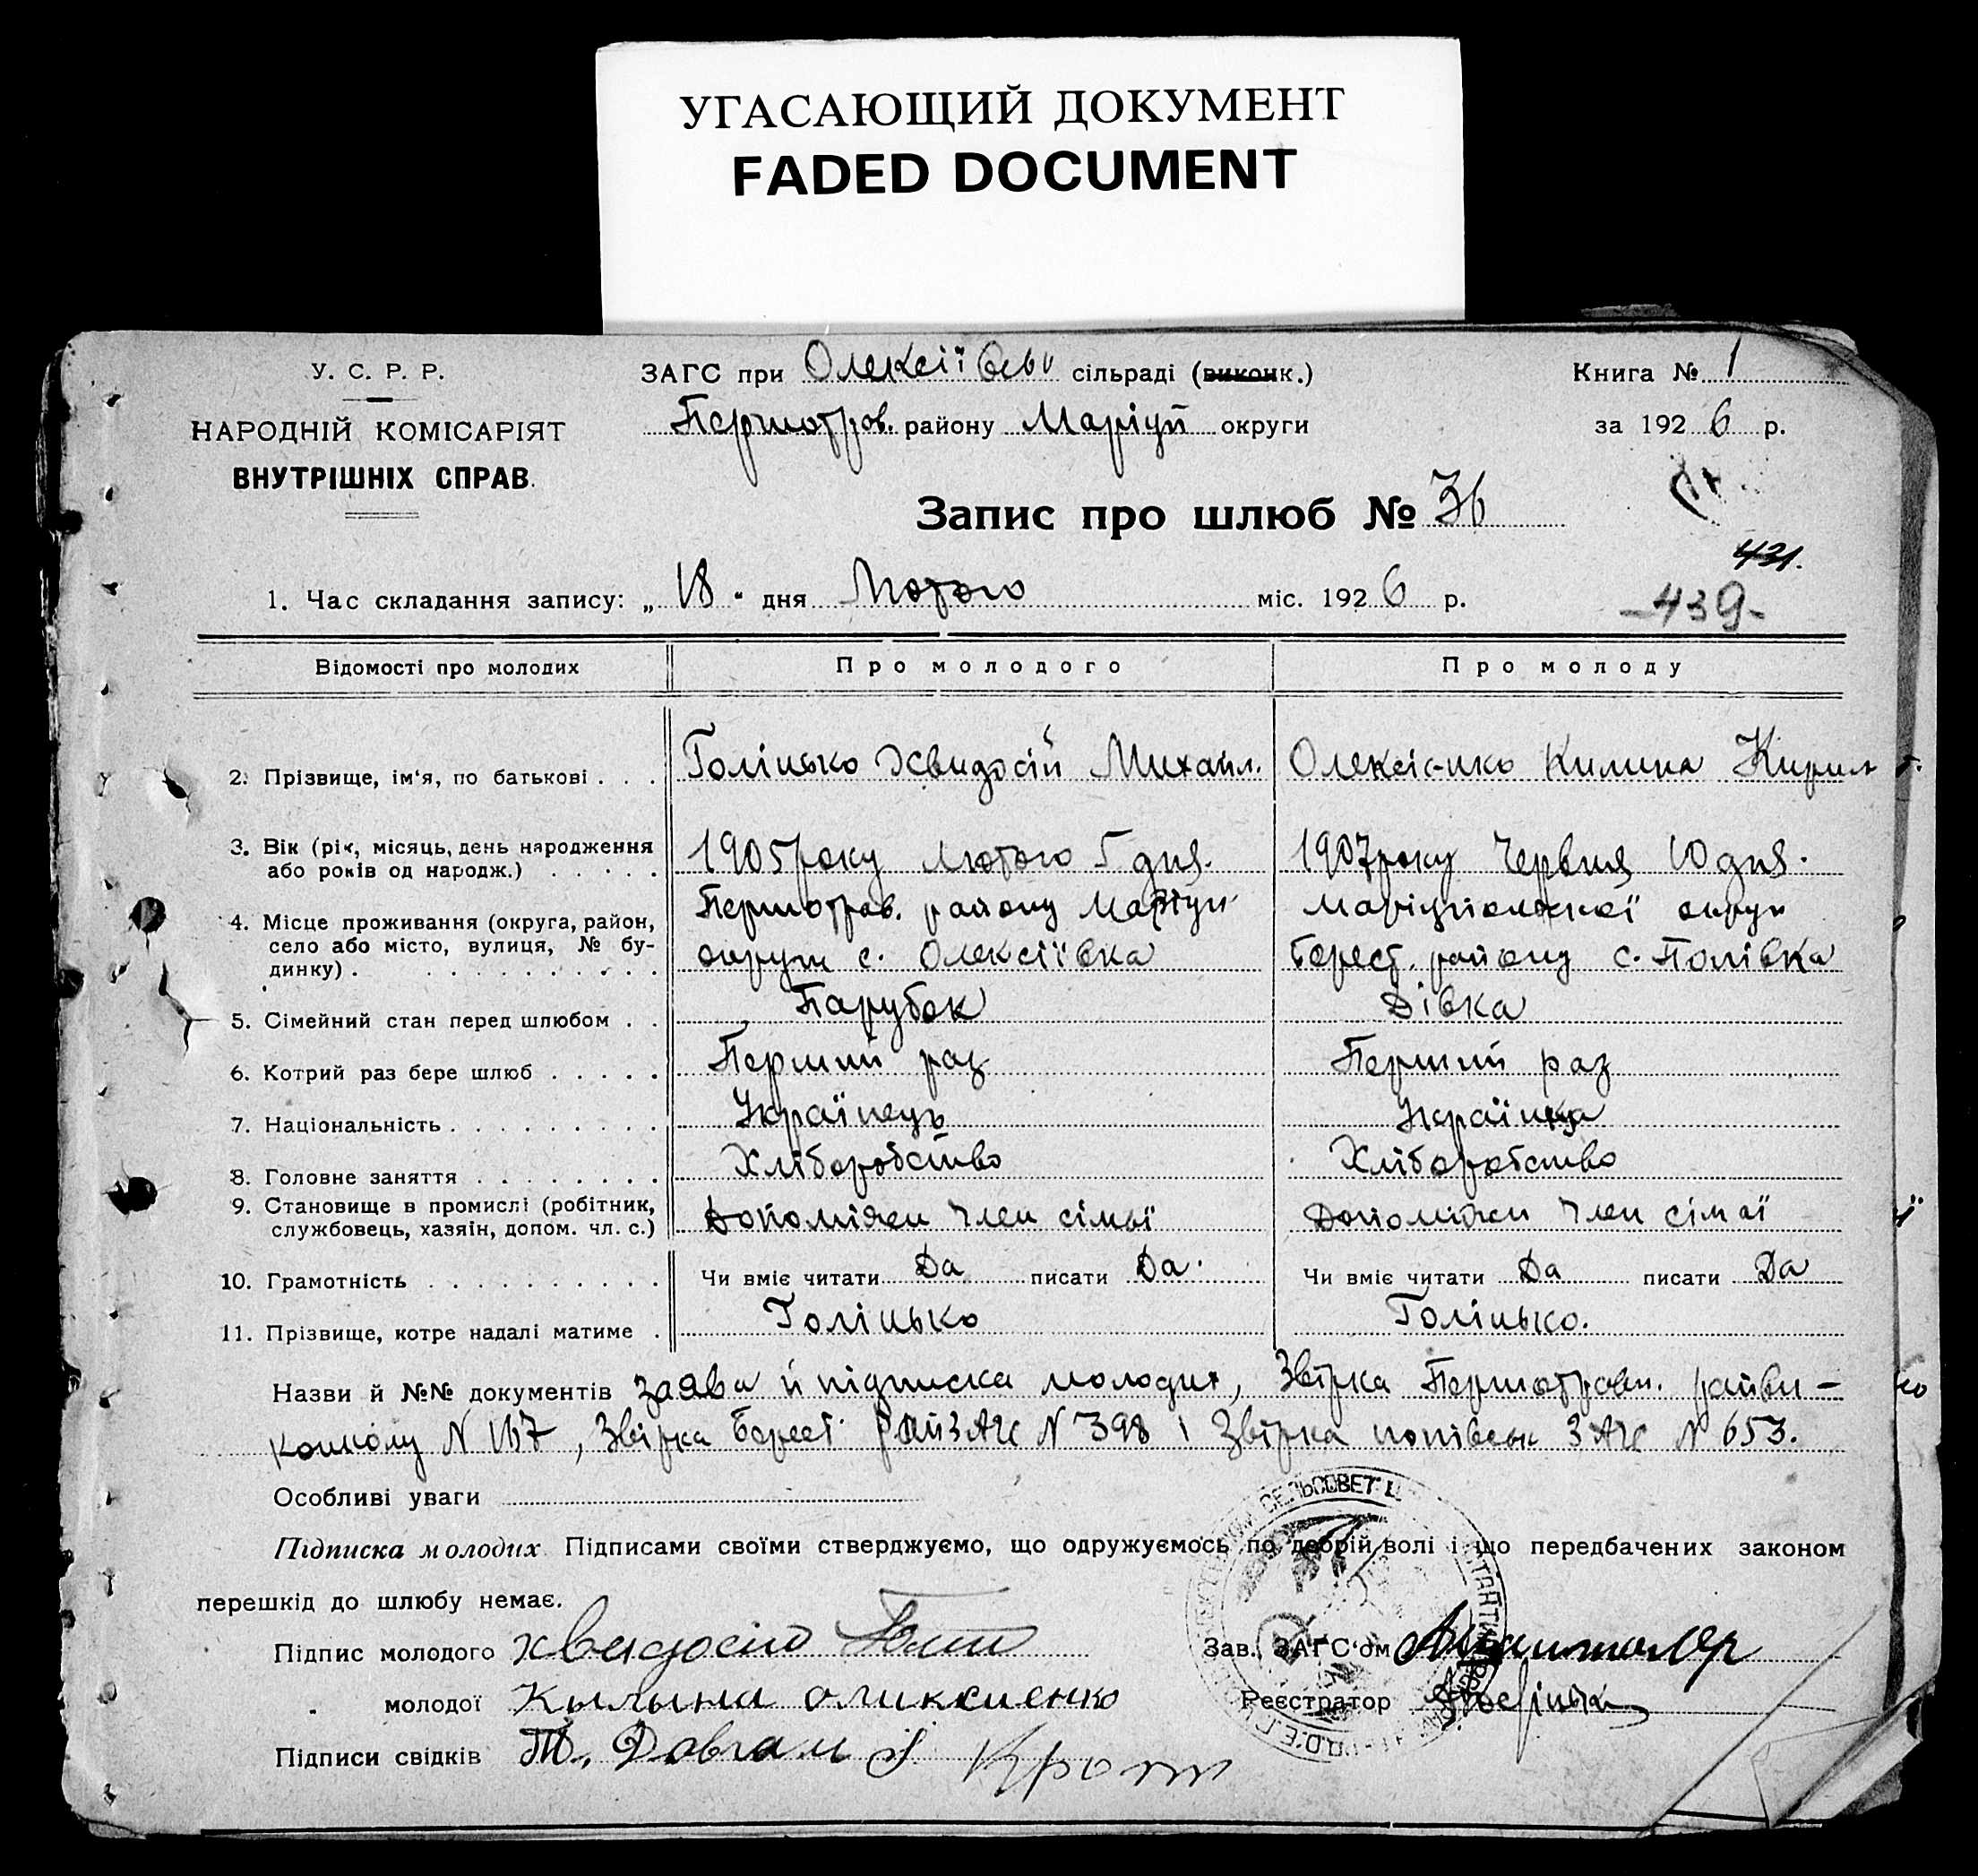 УГАСАЮЩИЙ ДОКУМЕНТ
FADED DOCUMENT
У. С. Р. Р.
НАРОДНІЙ КОМІСАРІЯТ
ВНУТРІШНІХ СПРАВ.
ЗАГС при Олексіївські сільраді (виконк.)
Першотрав. району Маріуп округи
Книга № 1
за 1926 р.
Запис про шлюб № 36
431.
-439-
1. Час складання запису: „18“ дня Лютого міс. 1926 р.
Відомості про молодих Про молодого Про молоду
2. Прізвище, ім'я, по батькові . . . Голінько Хвидосій Михайл. Олексієнко Килина Кирил
3. Вік (рік, місяць, день народження або років од народж.) . . . . . 1905 року Лютого 5 дня. 1907 року Червня 10 дня.
4. Місце проживання (округа, район, село або місто, вулиця, № будинку) . Першотрав. району Маріуп округи с. Олексіївка Маріупольської округи Берест. району с. Попівка
5. Сімейний стан перед шлюбом . . Парубок Дівка
6. Котрий раз бере шлюб . . . . . Перший раз Перший раз
7. Національність . . . . . . . . . Українець Українка
8. Головне заняття . . . . . . . . Хліборобство Хліборобство
9. Становище в промислі (робітник, службовець, хазяін, допом. чл. с.) Допоміжн член сімьї Допоміжн член сімьї
10. Грамотність . . . . . . . . . . Чи вміє читати Да писати Да. Чи вміє читати Да писати Да
11. Прізвище, котре надалі матиме . Голінько Голінько.
Назви й №№ документів заява й підписка молодих, Звірка Першотравн. райви-
конкому N 1167, Звірка Берест. райЗАГС N 398 і Звірка попівськ ЗАГС N 653.
Особливі уваги
Підписка молодих Підписами своїми стверджуємо, що одружуємось по добрій волі і що передбачених законом
перешкід до шлюбу немає.
Підпис молодого хведосій Зав. ЗАГС'ом
„ молодої Кылына оликсиенко Реєстратор
Підписи свідків Т. Довгаль Крот
СЕЛЬСОВЕТ